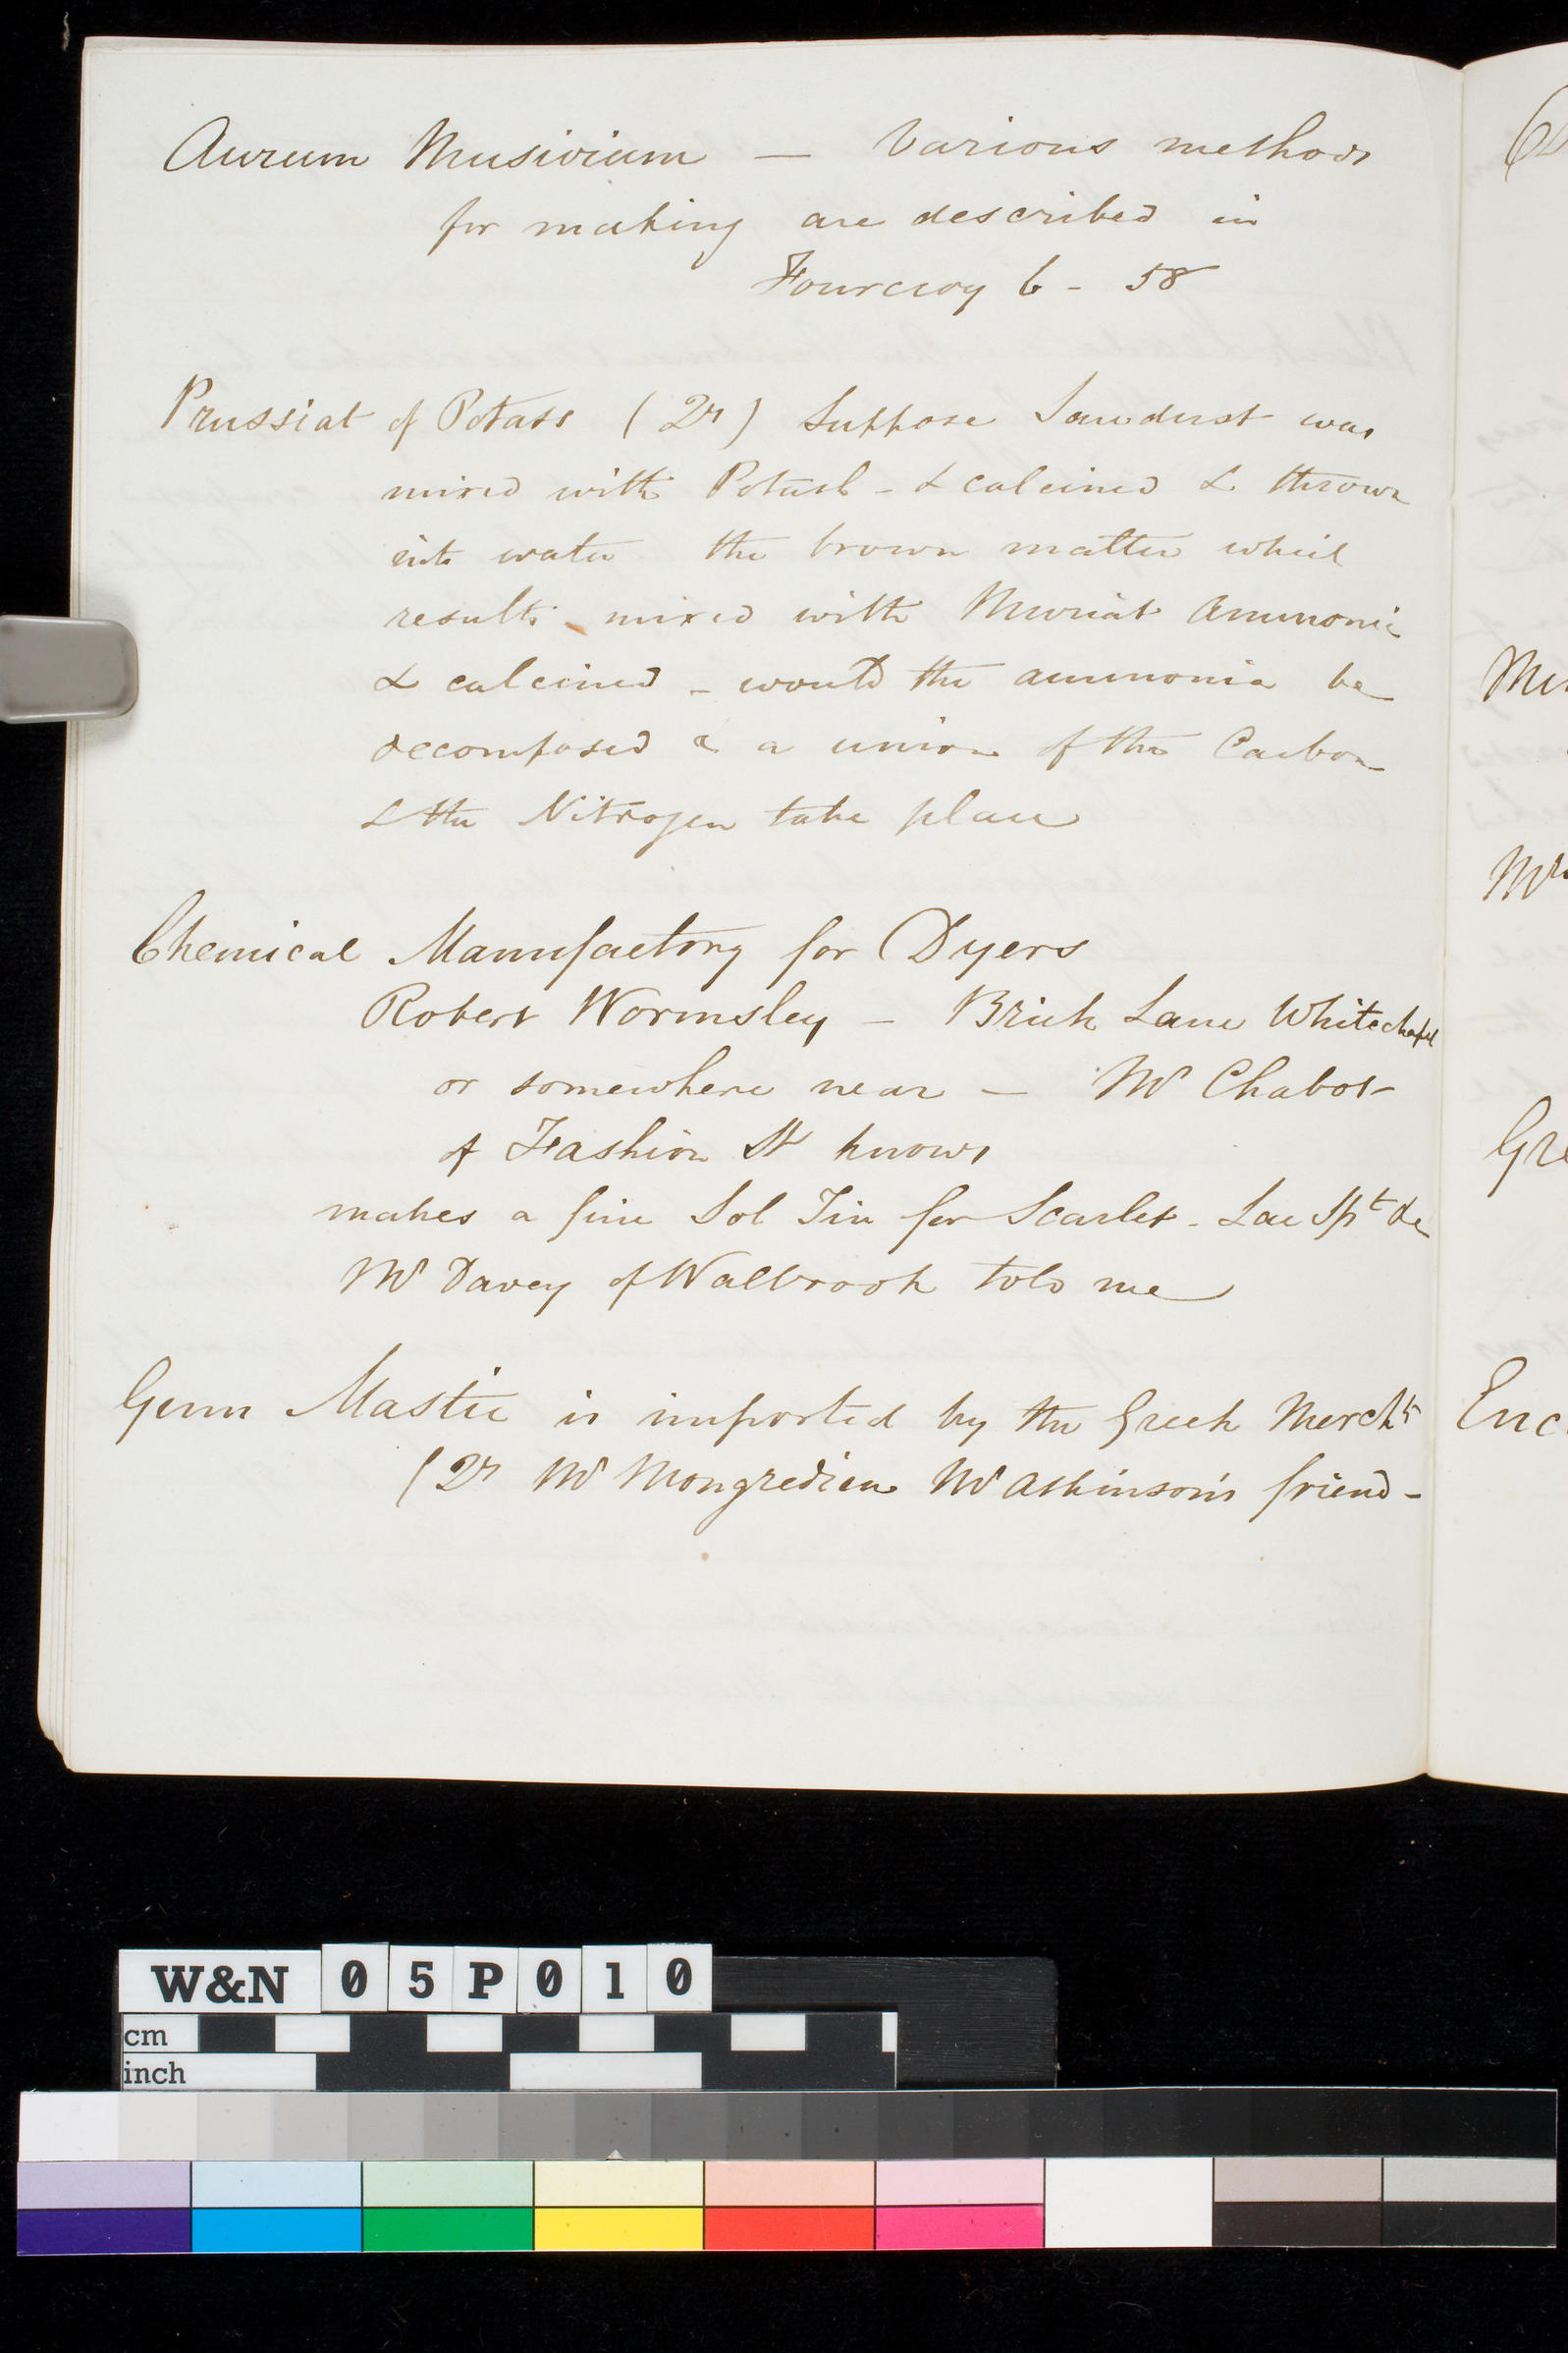 Aurum Musivium — Various methods
for making are described in
Fourcroy 6 - 58
Prussiat of Potass (Qr) Suppose Sawdust was
mixed with Potash - & calcined & thrown
into water the brown matter which
results mixed with Muriat Ammonia
& calcined - would the ammonia be
decomposed & a union of the Carbon
& the Nitrogen take place
Chemical Manufactory for Dyers
Robert Wormsley — Brick Lane Whitechapel
or somewhere near — Mr Chabot
of Fashion St knows
makes a fine Sol Tin for Scarlet - Lac Spt &c
Mr Davey of Walbrook told me
Gum Mastic is imported by the Greek Merchts
(Qr Mr Mongredien Mr Atkinson's friend -
Enc
Gre
W&N 05P010
cm
inch